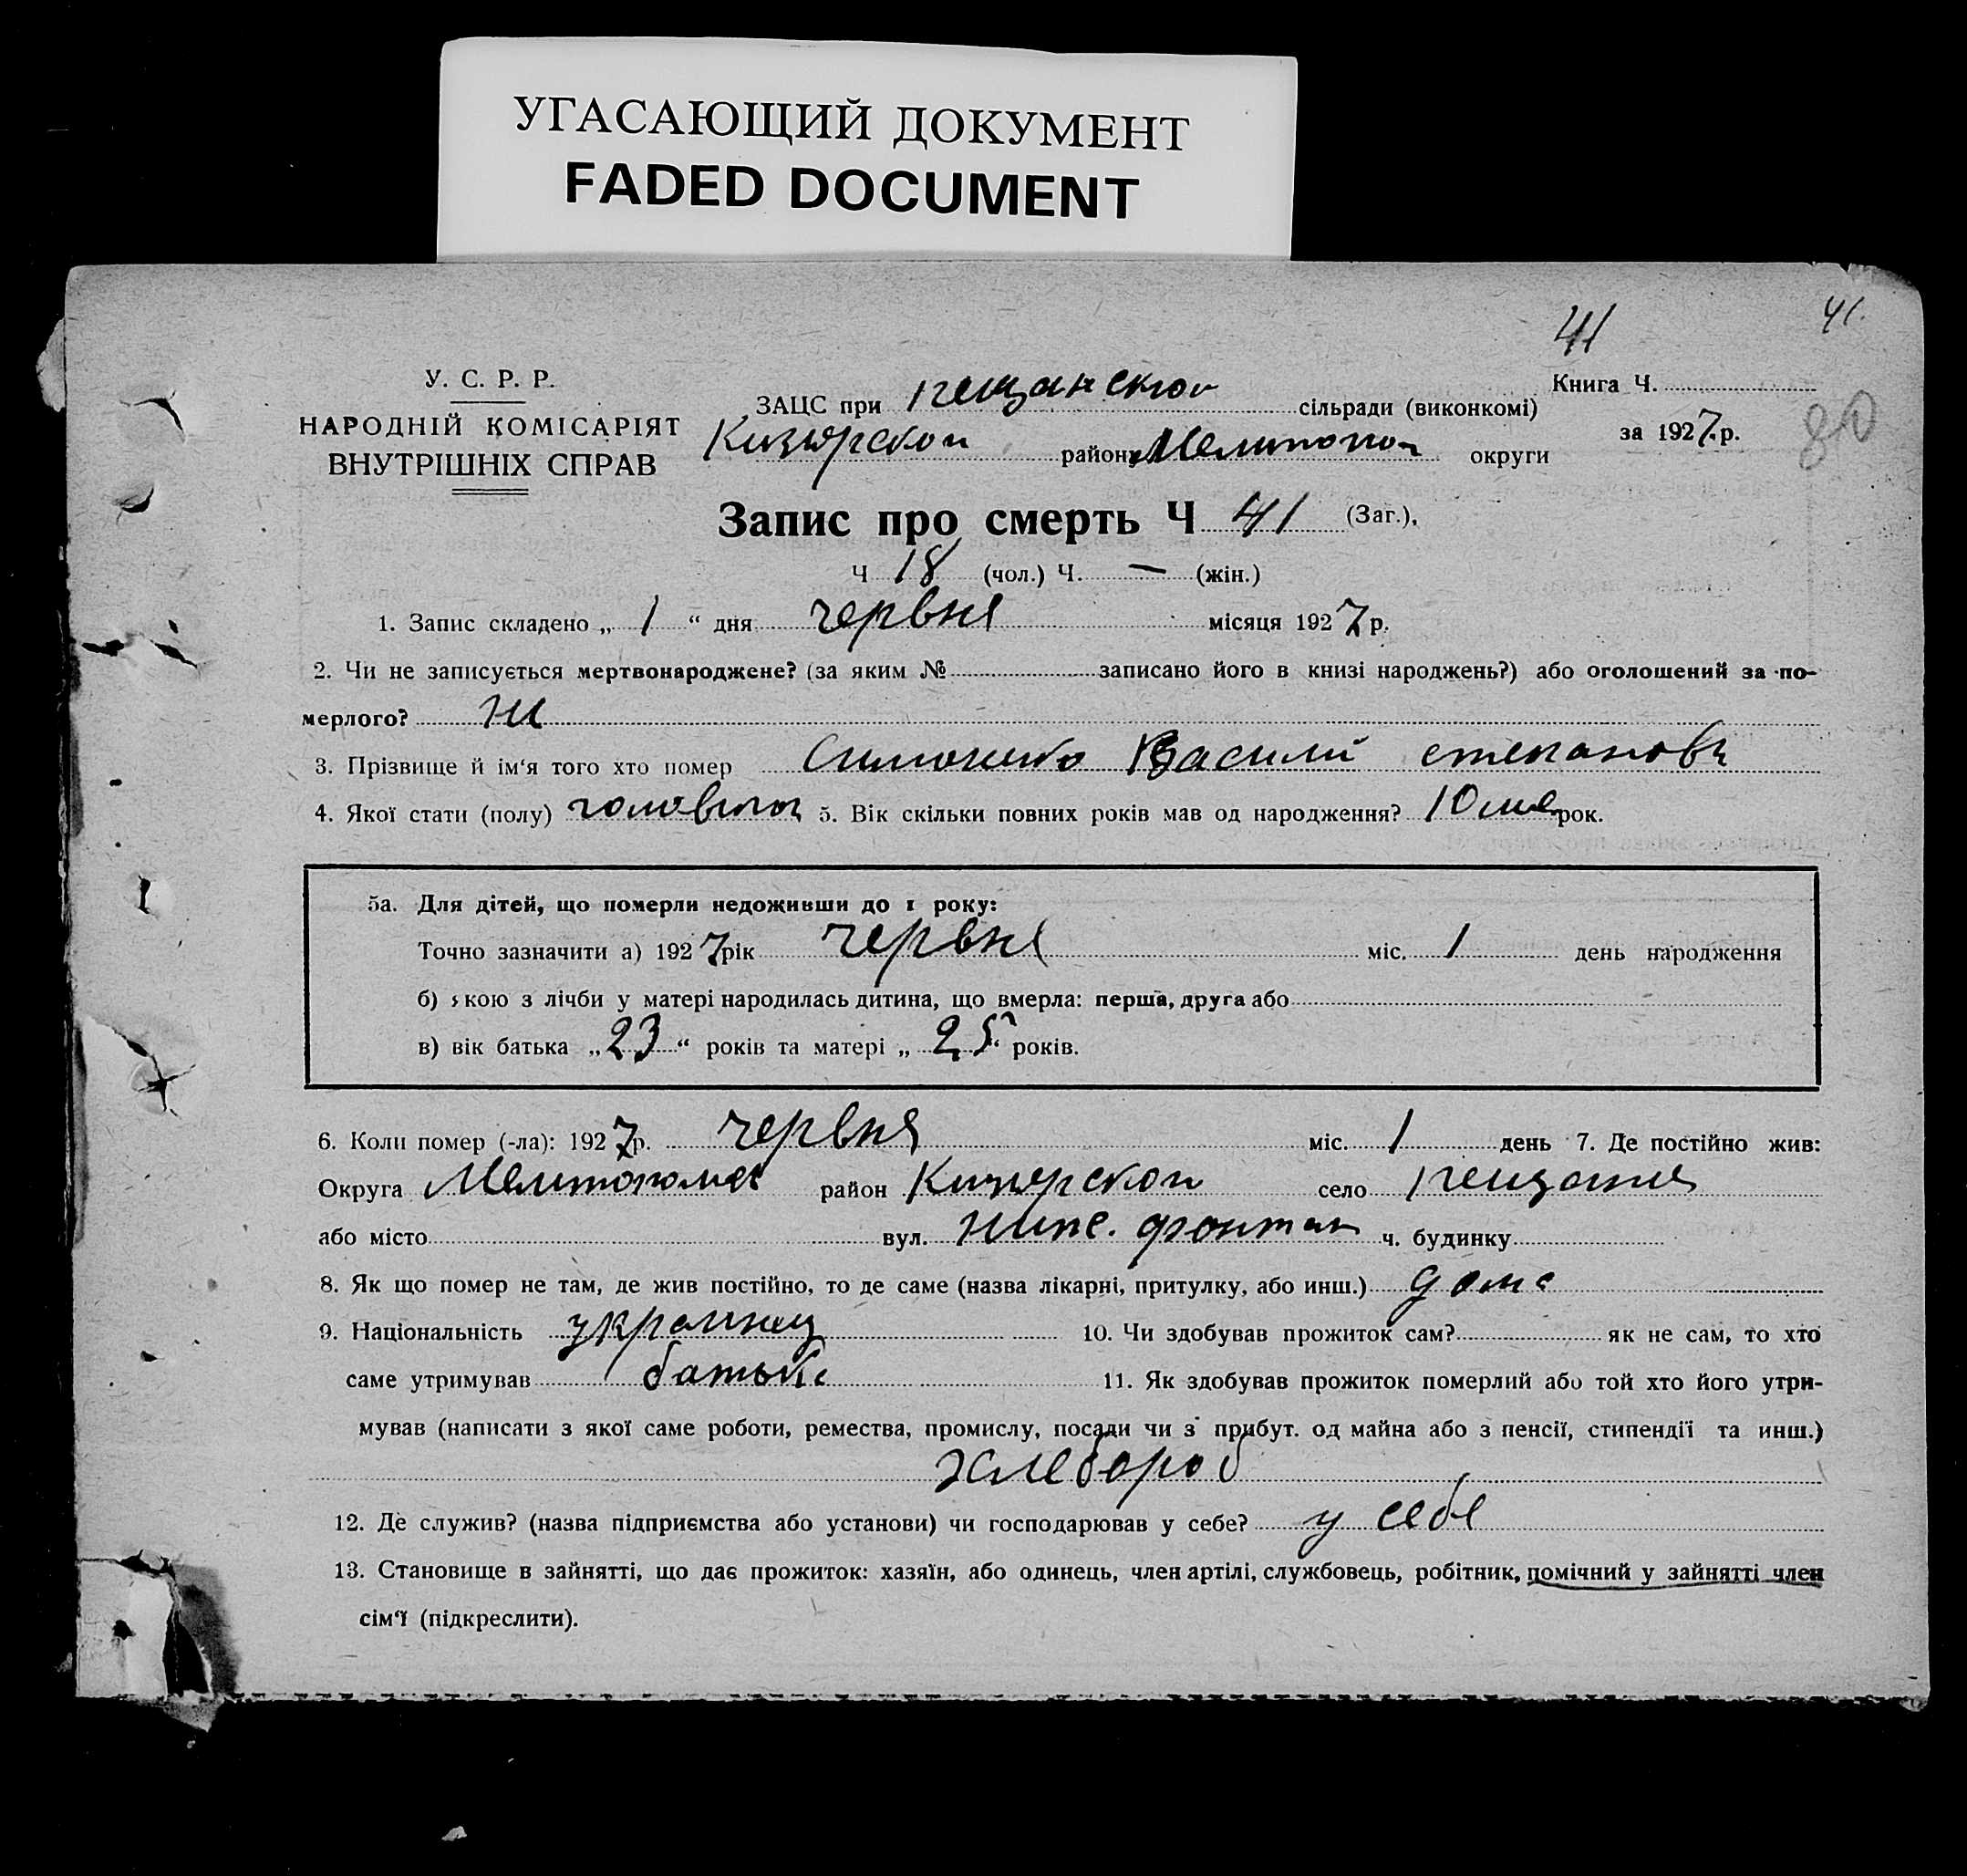 УГАСАЮЩИЙ ДОКУМЕНТ
FADED DOCUMENT
41
41.
У. С. Р. Р.
НАРОДНІЙ КОМІСАРІЯТ
ВНУТРІШНІХ СПРАВ
Книга Ч.
за 1927 р.
80
ЗАЦС при пещанской сільради (виконкомі)
Кизярской району Мелитопол округи
Запис про смерть Ч 41 (Заг.),
Ч 18 (чол.) Ч. — (жін.)
1. Запис складено „ 1 “ дня червня місяця 1927 р.
2. Чи не записується мертвонароджене? (за яким № записано його в книзі народжень?) або оголошений за по-
мерлого? ни
3. Прізвище й ім‘я того хто помер Симоненко Василий степанов
4. Якої стати (полу) 5. Вік скільки повних років мав од народження? рок.
5а. Для дітей, що померли недоживши до 1 року:
Точно зазначити а) 1927 рік червня міс. 1 день народження
б) якою з лічби у матері народилась дитина, що вмерла: перша, друга або
в) вік батька „ 23 “ років та матері „ 25 “ років.
6. Коли помер (-ла): 1927 р. червня міс. 1 день 7. Де постійно жив:
Округа район Кизярской село
або місто вул. ч. будинку
8. Як що помер не там, де жив постійно, то де саме (назва лікарні, притулку, або инш.) дома
9. Національність украинец 10. Чи здобував прожиток сам? як не сам, то хто
саме утримував батько 11. Як здобував прожиток померлий або той хто його утри-
мував (написати з якої саме роботи, ремества, промислу, посади чи з прибут. од майна або з пенсії, стипендії та инш.)
хлебороб
12. Де служив? (назва підприємства або установи) чи господарював у себе? у себе
13. Становище в зайнятті, що дає прожиток: хазяїн, або одинець, член артілі, службовець, робітник, помічний у зайнятті член
сім‘ї (підкреслити).